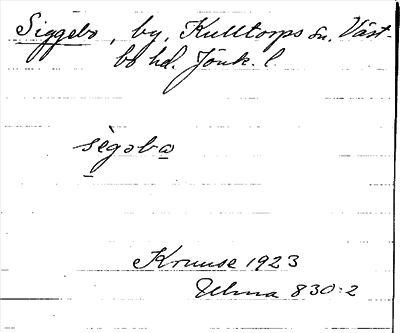 Siggebo, by, Kulltorps sn. Väst-
bo hd. Jönk. l.
sègəbo
Kruuse 1923
Ulma 830:2